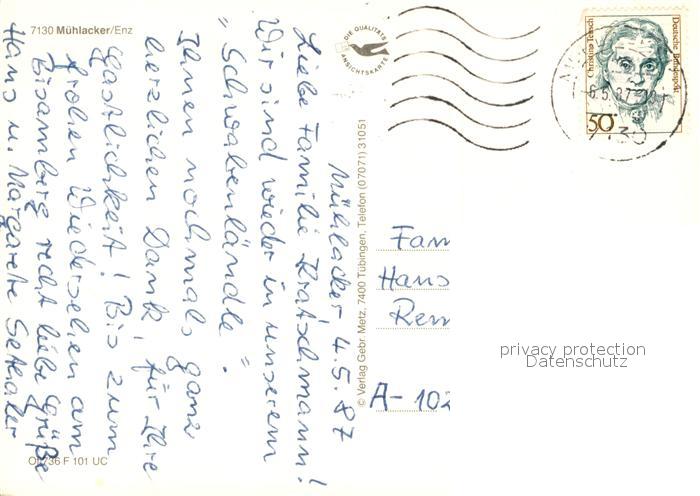 7130 Mühlacker/Enz
DIE QUALITÄTS
ANSICHTSKARTE
Mühlacker 4.5.87
Liebe Familie Kratschmann!
Wir sind wieder in unserem
"Schwabenländle".
Ihnen nochmals ganz
herzlichen Dank, für Ihre
Gastlichkeit! Bis zum
frohen Wiedersehen am
Bisamberg recht liebe Grüße
Hans u. Margarete
© Verlag Gebr. Metz, 7400 Tübingen, Telefon (07071) 31051
Christine Teusch
Deutsche Bundespost
50
-6.5.87
7130
Fam
Hans
A-102
privacy protection
Datenschutz
736 F 101 UC